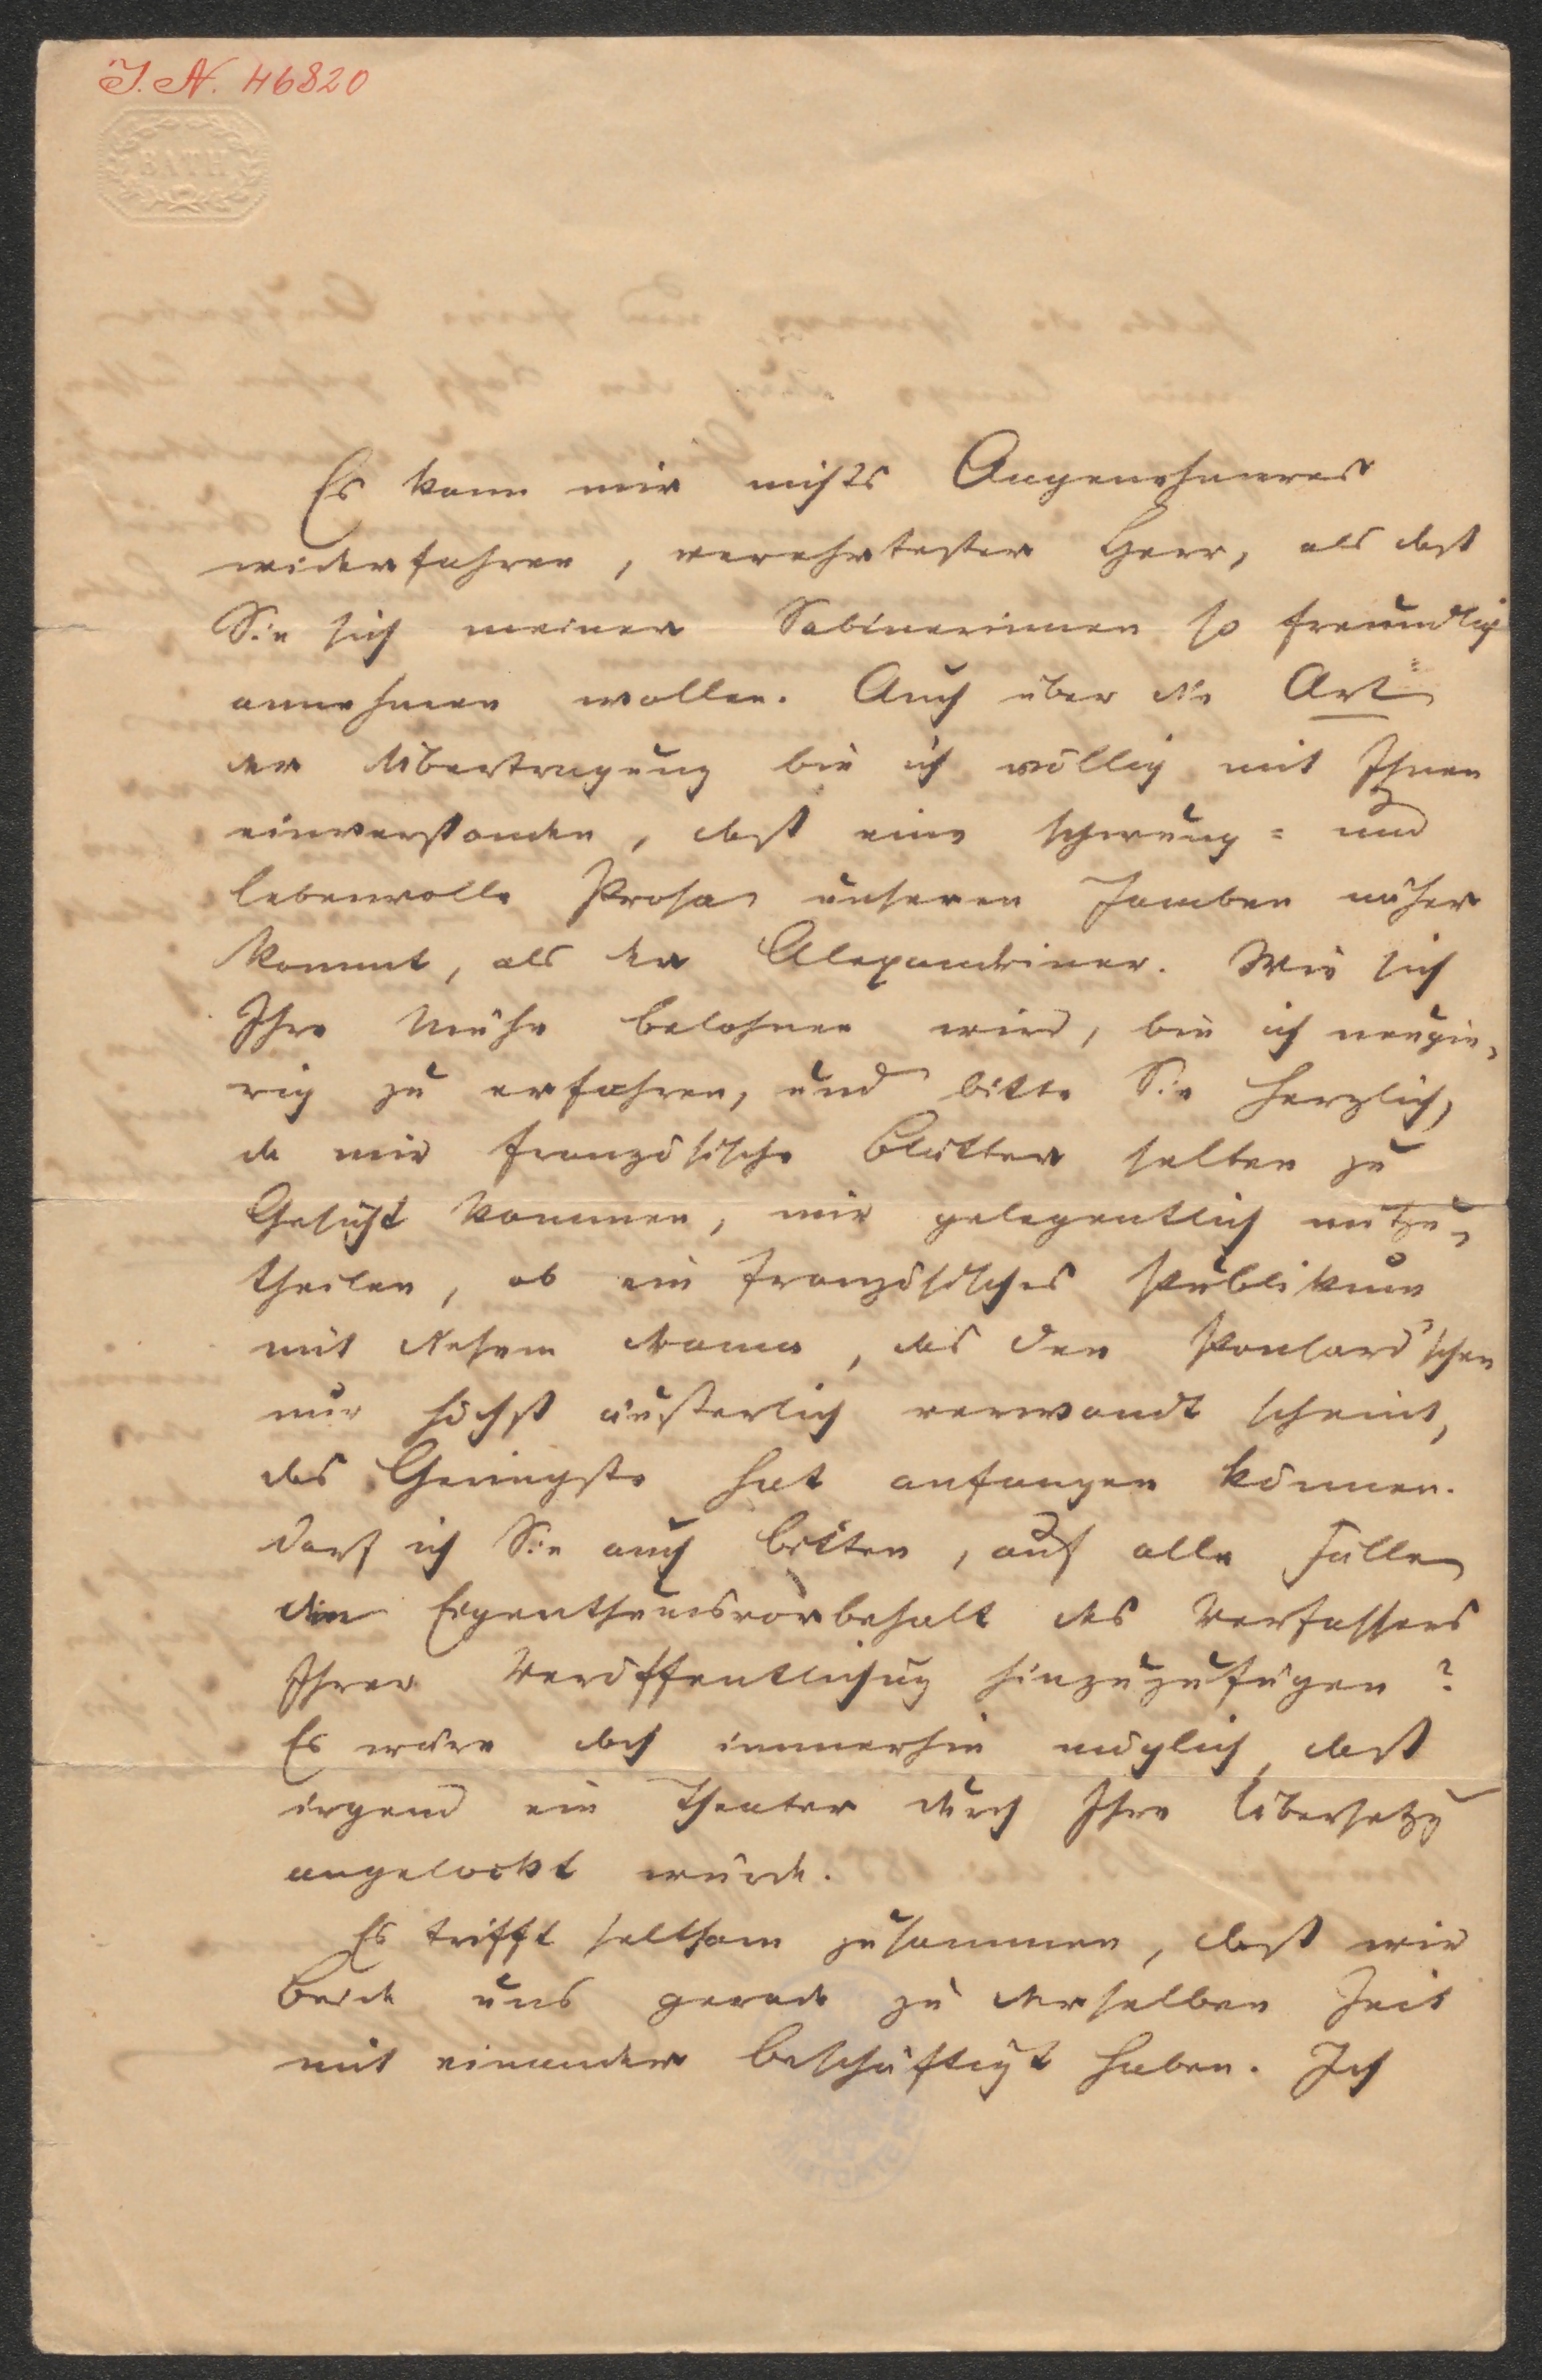 I. N. 46820
BATH
Es kann mir nichts Angenehmeres
widerfahren, verehrtester Herr, als daß
Sie sich meiner Sabinerinnen so freundlich
annehmen wollen. Auch über die Art
der Übertragung bin ich völlig mit Ihnen
einverstanden, daß eine schwung= und
lebenvolle Prosa unseren Jamben näher
kommt, als der Alexandriner. Wie sich
Ihre Mühe belohnen wird, bin ich neugie-
rig zu erfahren, und bitte Sie herzlich,
da mir französische Blätter selten zu
Gesicht kommen, mir gelegentlich mitzu-
theilen, ob ein französisches Publikum
mit diesem Drama, das den Ponsard'schen
nur höchst äußerlich verwandt scheint,
das Geringste hat anfangen können.
Darf ich Sie auch bitten, auf alle Fälle
den Eigenthumsvorbehalt des Verfassers
Ihrer Veröffentlichung hinzuzufügen?
Es wäre doch immerhin möglich, daß
irgend ein Theater durch Ihre Übersetzg
angelockt würde.
Es trifft seltsam zusammen, daß wir
beide uns gerade zu derselben Zeit
mit einander beschäftigt haben. Ich